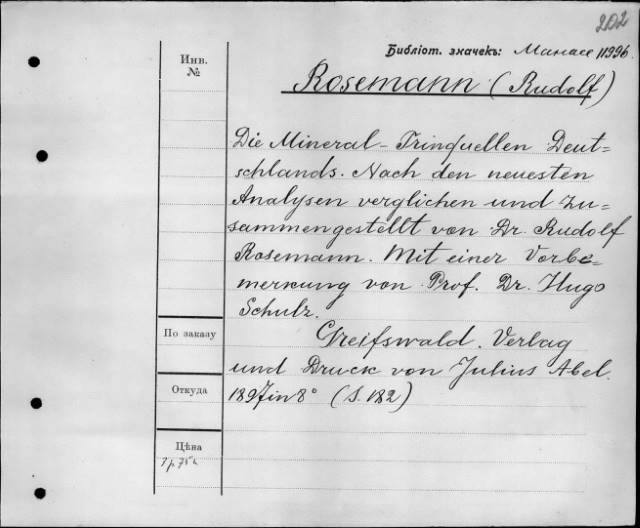 202
Библіот. значекъ: Манасе 11996.
Инв.
№
Rosemann (Rudolf)
Die Mineral-Trinquellen Deut=
schlands. Nach den neuesten
Analysen verglichen und zu=
sammengestellt von Dr. Rudolf
Rosemann. Mit einer Vorbe=
merkung von Prof. Dr. Hugo
Schulz.
По заказу
Greifswald. Verlag
und Druck von Julius Abel.
Откуда
1897 in 8° (S. 182)
Цѣна
1 р. 75 к